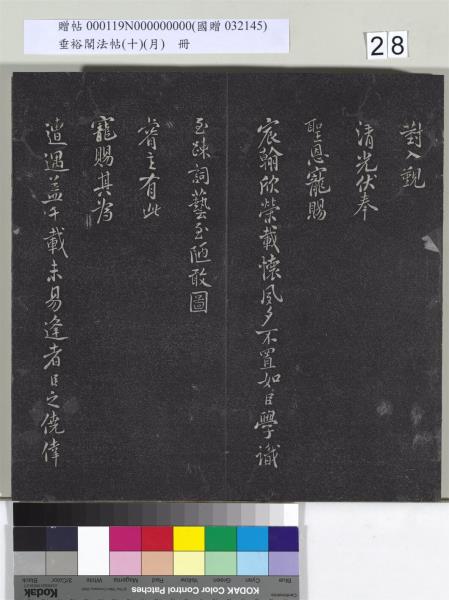 贈帖 000119N000000000(國贈 032145)
垂裕閣法帖(十)(月) 冊
28
對入覲
清光伏奉
聖恩寵賜
宸翰欣榮載懷夙夕不置如臣學識
至疎詞藝至陋敢圖
睿主有此
寵賜其為
遭遇蓋千載未易逢者臣之僥倖
Blue
Cyan
Green
Yellow
Red
Magenta
White
3/Color
Black
KODAK Color Control Patches
KODAK